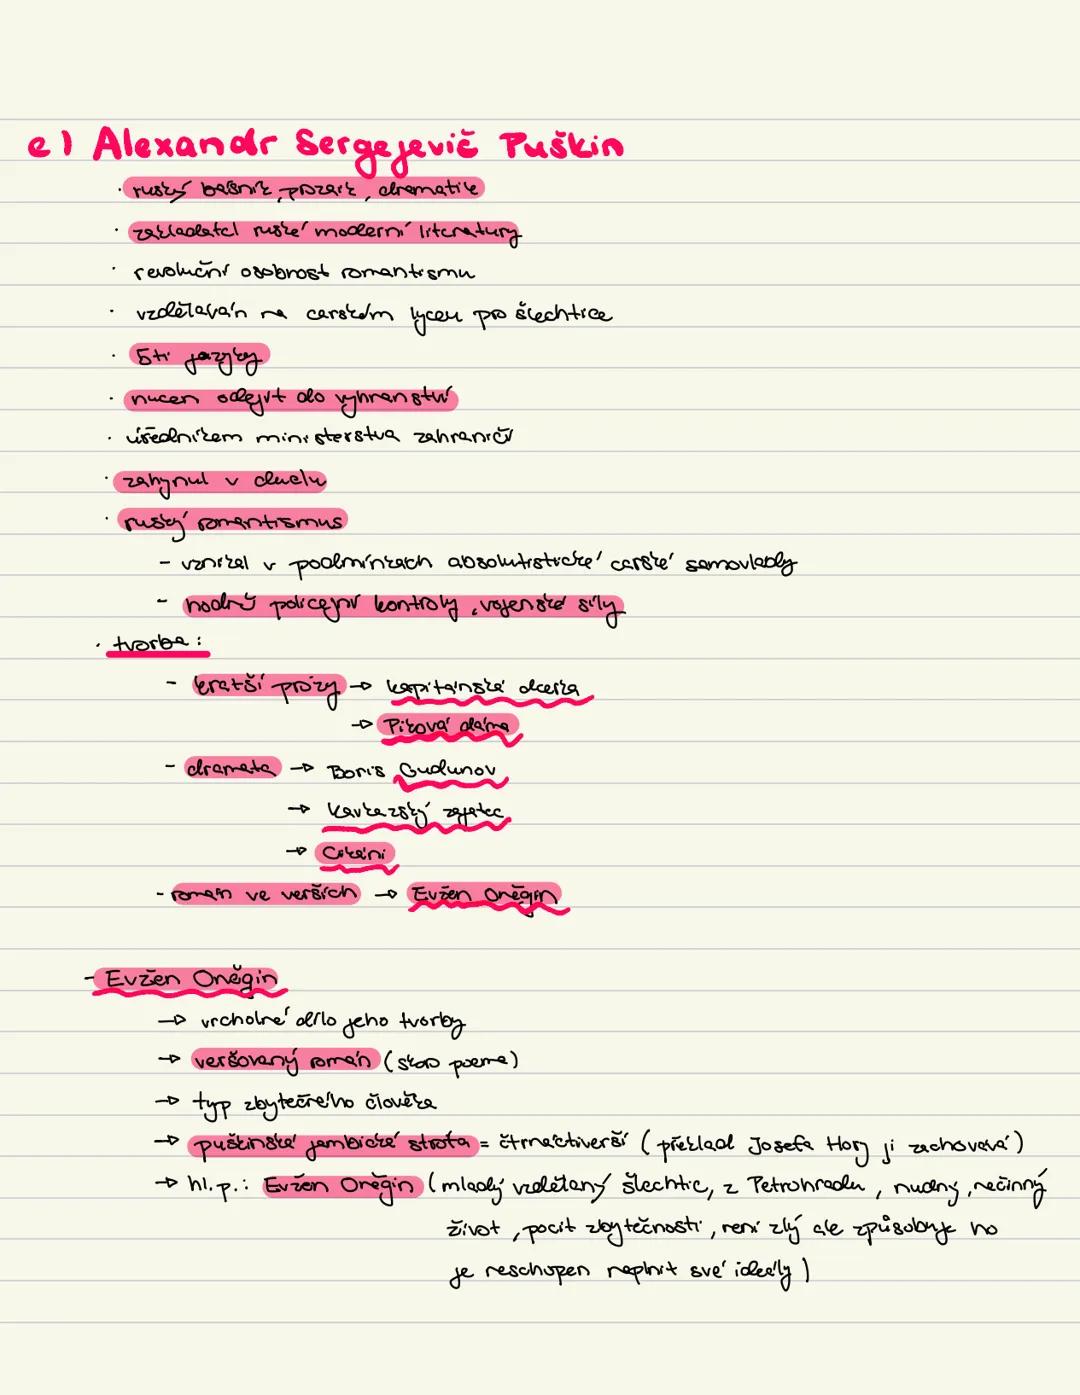 e) Alexandr Sergejevič Puškin
· ruský básník, prozaik, dramatik
· zakladatel ruské moderní literatury
· revoluční osobnost romantismu
· vzděláván na carském lyceu pro šlechtice
· 5ti jazyky
· nucen odejít do vyhnanství
· úředníkem ministerstva zahraničí
· zahynul v duelu
· ruský romantismus
- vznikal v podmínkách absolutistické carské samovlády
- hodně policejní kontroly, vojenské síly
· tvorba:
- kratší prózy → kapitánská dcerka
→ Piková dáma
- dramata → Boris Gudunov
→ kavkazský zajatec
→ Cikáni
- román ve verších → Evžen Oněgin
- Evžen Oněgin
→ vrcholné dílo jeho tvorby
→ veršovaný román (skoro poema)
→ typ zbytečného člověka
→ puškinská jambické strofa = čtrnáctiverší (překlad Josefa Hory ji zachovává)
→ hl.p.: Evžen Oněgin (mladý vzdělaný šlechtic, z Petrohradu, nudný, nečinný
život, pocit zbytečnosti, není zlý ale způsobuje ho
je neschopen naplnit své ideály)